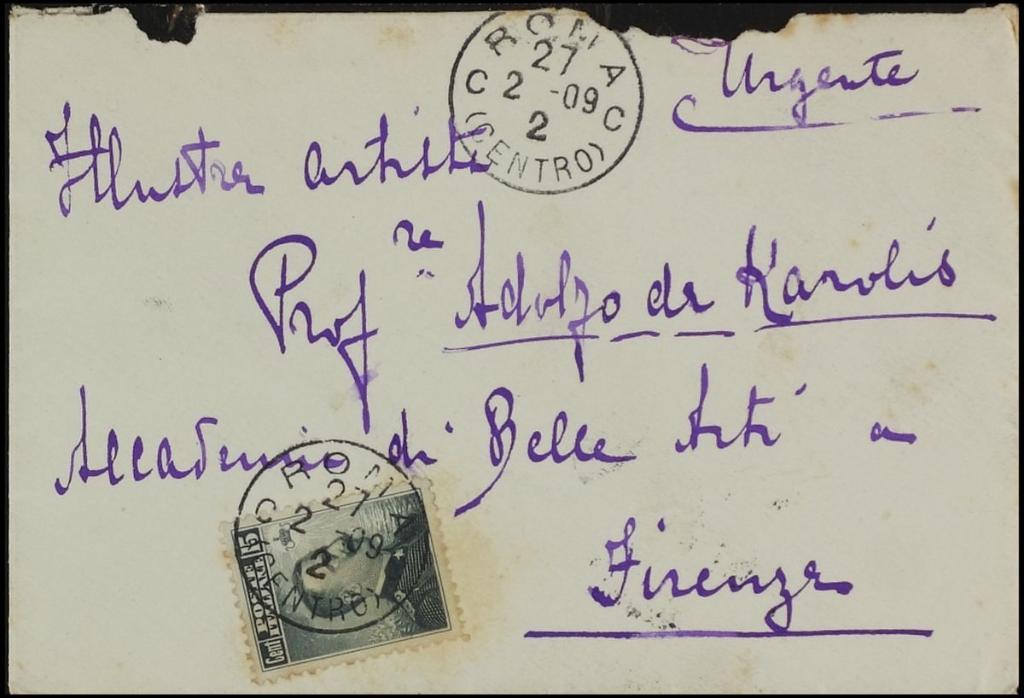 ROMA
27
C 2 -09 C
2
(CENTRO)
Urgente
Illustre artista
Prof.re Adolfo de Karolis
Accademia di Belle Arti a
Firenze
ROMA
27
C 2 -09
2
(CENTRO)
Cent 15
POSTE
ITALIANE